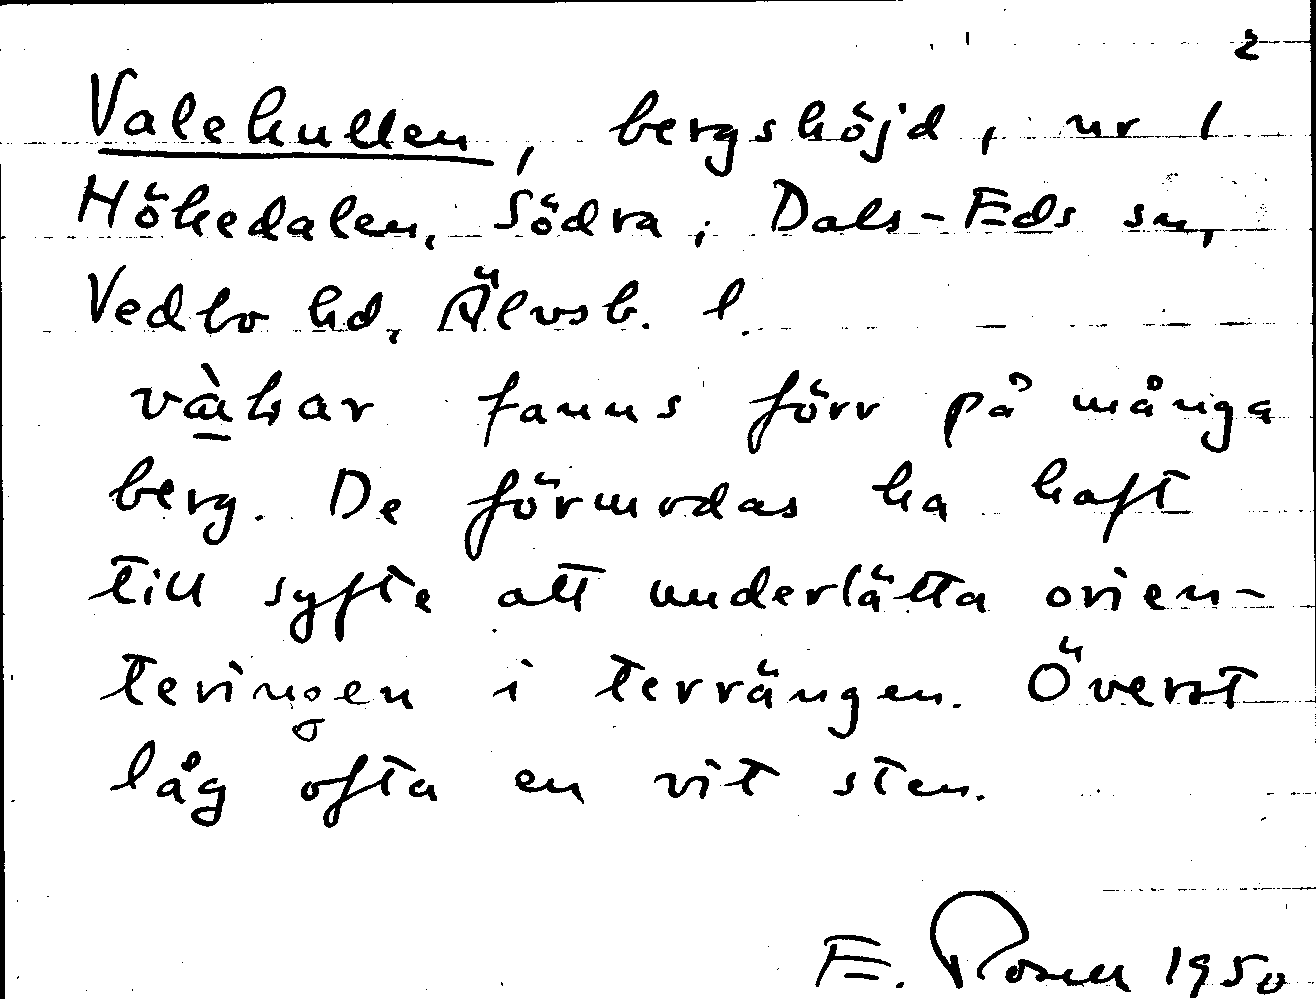 2
Valekullen, bergshöjd, nr 1
Hökedalen, Södra, Dals-Eds sn,
Vedbo hd, Älvsb. l.
vàkar fanns förr på många
berg. De förmodas ha haft
till syfte att underlätta orien-
teringen i terrängen. Överst
låg ofta en vit sten.
E. Rosell 1950